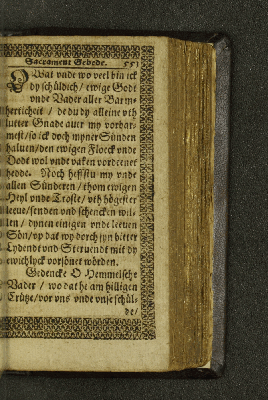 Sacrament Gebede. 551
O Wat vnde wo veel bin ick
dy schüldich / ewige Godt
vnde Vader aller Barm-
herticheit / de du dy alleine vth
lutter Gnade auer my vorbar-
mest / so ick doch myner Sünden
haluen / den ewigen Floeck vnde
Dodt wol vnde vaken vordenet
hedde. Noch heffstu my vnde
allen Sünderen / thom ewigen
Heyl vnde Troste / vth högester
leeue / senden vnd schencken wil-
len / dynen einigen vnde leeuen
Sön / vp dat wy dorch syn bitter
Lydent vnd Steruendt mit dy
ewichlyck vorsönet wörden.
Gedencke O Hemmelsche
Vader / wo dat he am hilligen
Crütze / vor vns vnde vnse schül-
de /